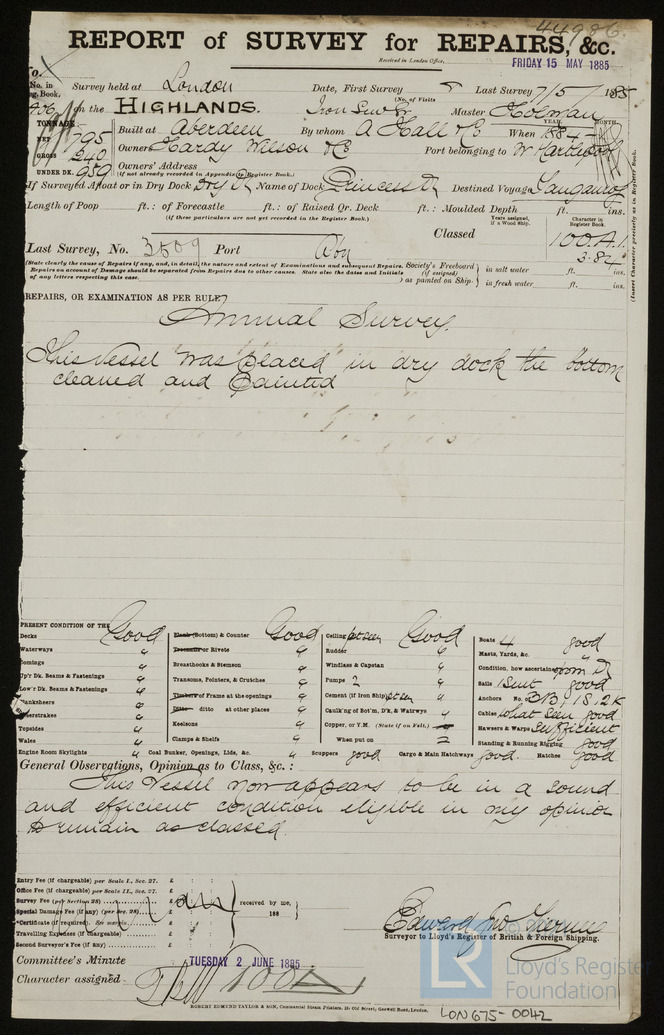 44986
REPORT of SURVEY for REPAIRS, &c.
Received in London Office, FRIDAY 15 MAY 1885
No. in Survey held at London Date, First Survey Last Survey 7/5/1885
Reg. Book. (No. of Visits
on the HIGHLANDS. Iron Master Holman
TONNAGE YEAR. MONTH.
NET 795 Built at Aberdeen By whom A Hall & Co When 1884
GROSS 240 Owners Hardy Wilson & Co Port belonging to W Hartlepool
UNDER DK. 959 Owners' Address
(if not already recorded in Appendix to Register Book.)
If Surveyed Afloat or in Dry Dock Dry Dk Name of Dock Princess Dk Destined Voyage
Length of Poop ft.: of Forecastle ft.: of Raised Qr. Deck ft.: Moulded Depth ft. ins.
(if these particulars are not yet recorded in the Register Book.)
Years assigned, if a Wood Ship. Character in Register Book.
Classed 100.A.1.
Last Survey, No. 3509 Port 3.84
(State clearly the cause of Repairs if any, and, in detail, the nature and extent of Examinations and subsequent Repairs.
Repairs on account of Damage should be separated from Repairs due to other causes. State also the dates and Initials
of any letters respecting this case.
Society's Freeboard (if assigned) as painted on Ship. in salt water ft. ins.
in fresh water ft. ins.
(Insert Character precisely as in Register Book.
REPAIRS, OR EXAMINATION AS PER RULE
Annual Survey.
This Vessel was placed in dry dock the bottom
cleaned and painted
PRESENT CONDITION OF THE
Decks Good (Bottom) & Counter Good Ceiling not seen Good Boats 4 good
Waterways " or Rivets " Rudder " Masts, Yards, &c. good
Comings " Breasthooks & Stemson " Windlass & Capstan " Condition, how ascertained from Dk
Up'r Dk. Beams & Fastenings " Transoms, Pointers, & Crutches " Pumps 2 " Sails 1 Suit good
Low'r Dk. Beams & Fastenings " Timbers of Frame at the openings " Cement (if Iron Ship) not seen " Anchors No. of 3B, 1S, 2K
Planksheers " ditto at other places " Caulk'g of Bot'm, Dk., & Watrwys " Cables what seen good
Sheerstrakes " Keelsons " Copper, or Y.M. (State if on Felt.) Hawsers & Warps Sufficient
Topsides " Clamps & Shelfs " When put on Standing & Running Rigging good
Wales "
Engine Room Skylights " Coal Bunker, Openings, Lids, &c. " Scuppers good Cargo & Main Hatchways good. Hatches Good
General Observations, Opinion as to Class, &c. :
This Vessel now appears to be in a sound
and efficient condition eligible in my opinion
to remain as classed.
Entry Fee (if chargeable) per Scale I., Sec. 27. £ : :
Office Fee (if chargeable) per Scale II., Sec. 27. £ : :
Survey Fee (per Section 28) £ : :
Special Damage Fee (if any) (per Sec. 28) £ : :
*Certificate (if required). £ : :
Travelling Expenses (if chargeable) £ : :
Second Surveyor's Fee (if any) £ : :
received by me,
188
Surveyor to Lloyd's Register of British & Foreign Shipping.
Committee's Minute TUESDAY 2 JUNE 1885
Character assigned 100A1
ROBERT EDMUND TAYLOR & SON, Commercial Steam Printers, 19, Old Street, Goswell Road, London.
LR
© Lloyd's Register
Foundation
LON675-0042